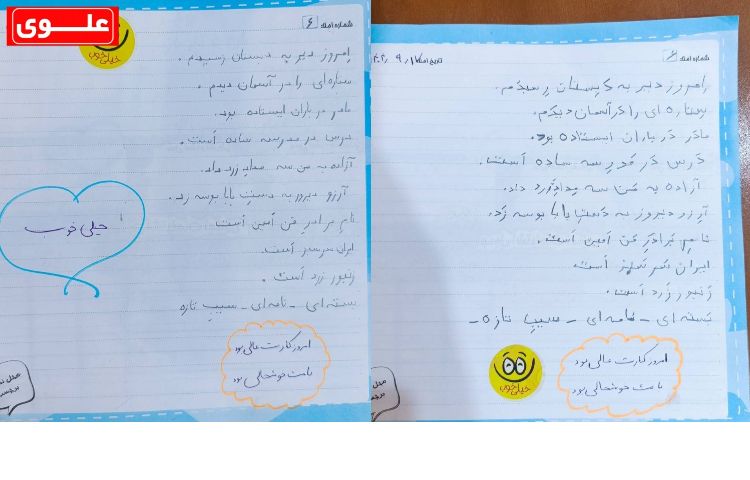 علــوی
خیلی خوب
شماره املاء ۶
امروز دیر به دبستان رسیدم.
ستاره ای را در آسمان دیدم.
مادر در باران ایستاده بود.
درس در مدرسه ساده است.
آزاده به من سه مداد زرد داد.
آرزو دیروز به دست بابا بوسه زد.
نام برادر من امین است
ایران سرسبز است.
زنبور زرد است.
بسته ای - نامه ای - سیب تازه
خیلی خوب
امروز کارت عالی بود
باعث خوشحالی بود
شماره املاء ۶
تاریخ املاء
امروز دیر به دبستان رسیدم.
ستاره ای را در آسمان دیدم.
مادر در باران ایستاده بود.
درس در مدرسه ساده است.
آزاده به من سه مداد زرد داد.
آرزو دیروز به دست بابا بوسه زد.
نام برادر من امین است.
ایران سرسبز است
زنبور زرد است.
بسته ای - نامه ای - سیب تازه -
خیلی خوب
امروز کارت عالی بود
باعث خوشحالی بود